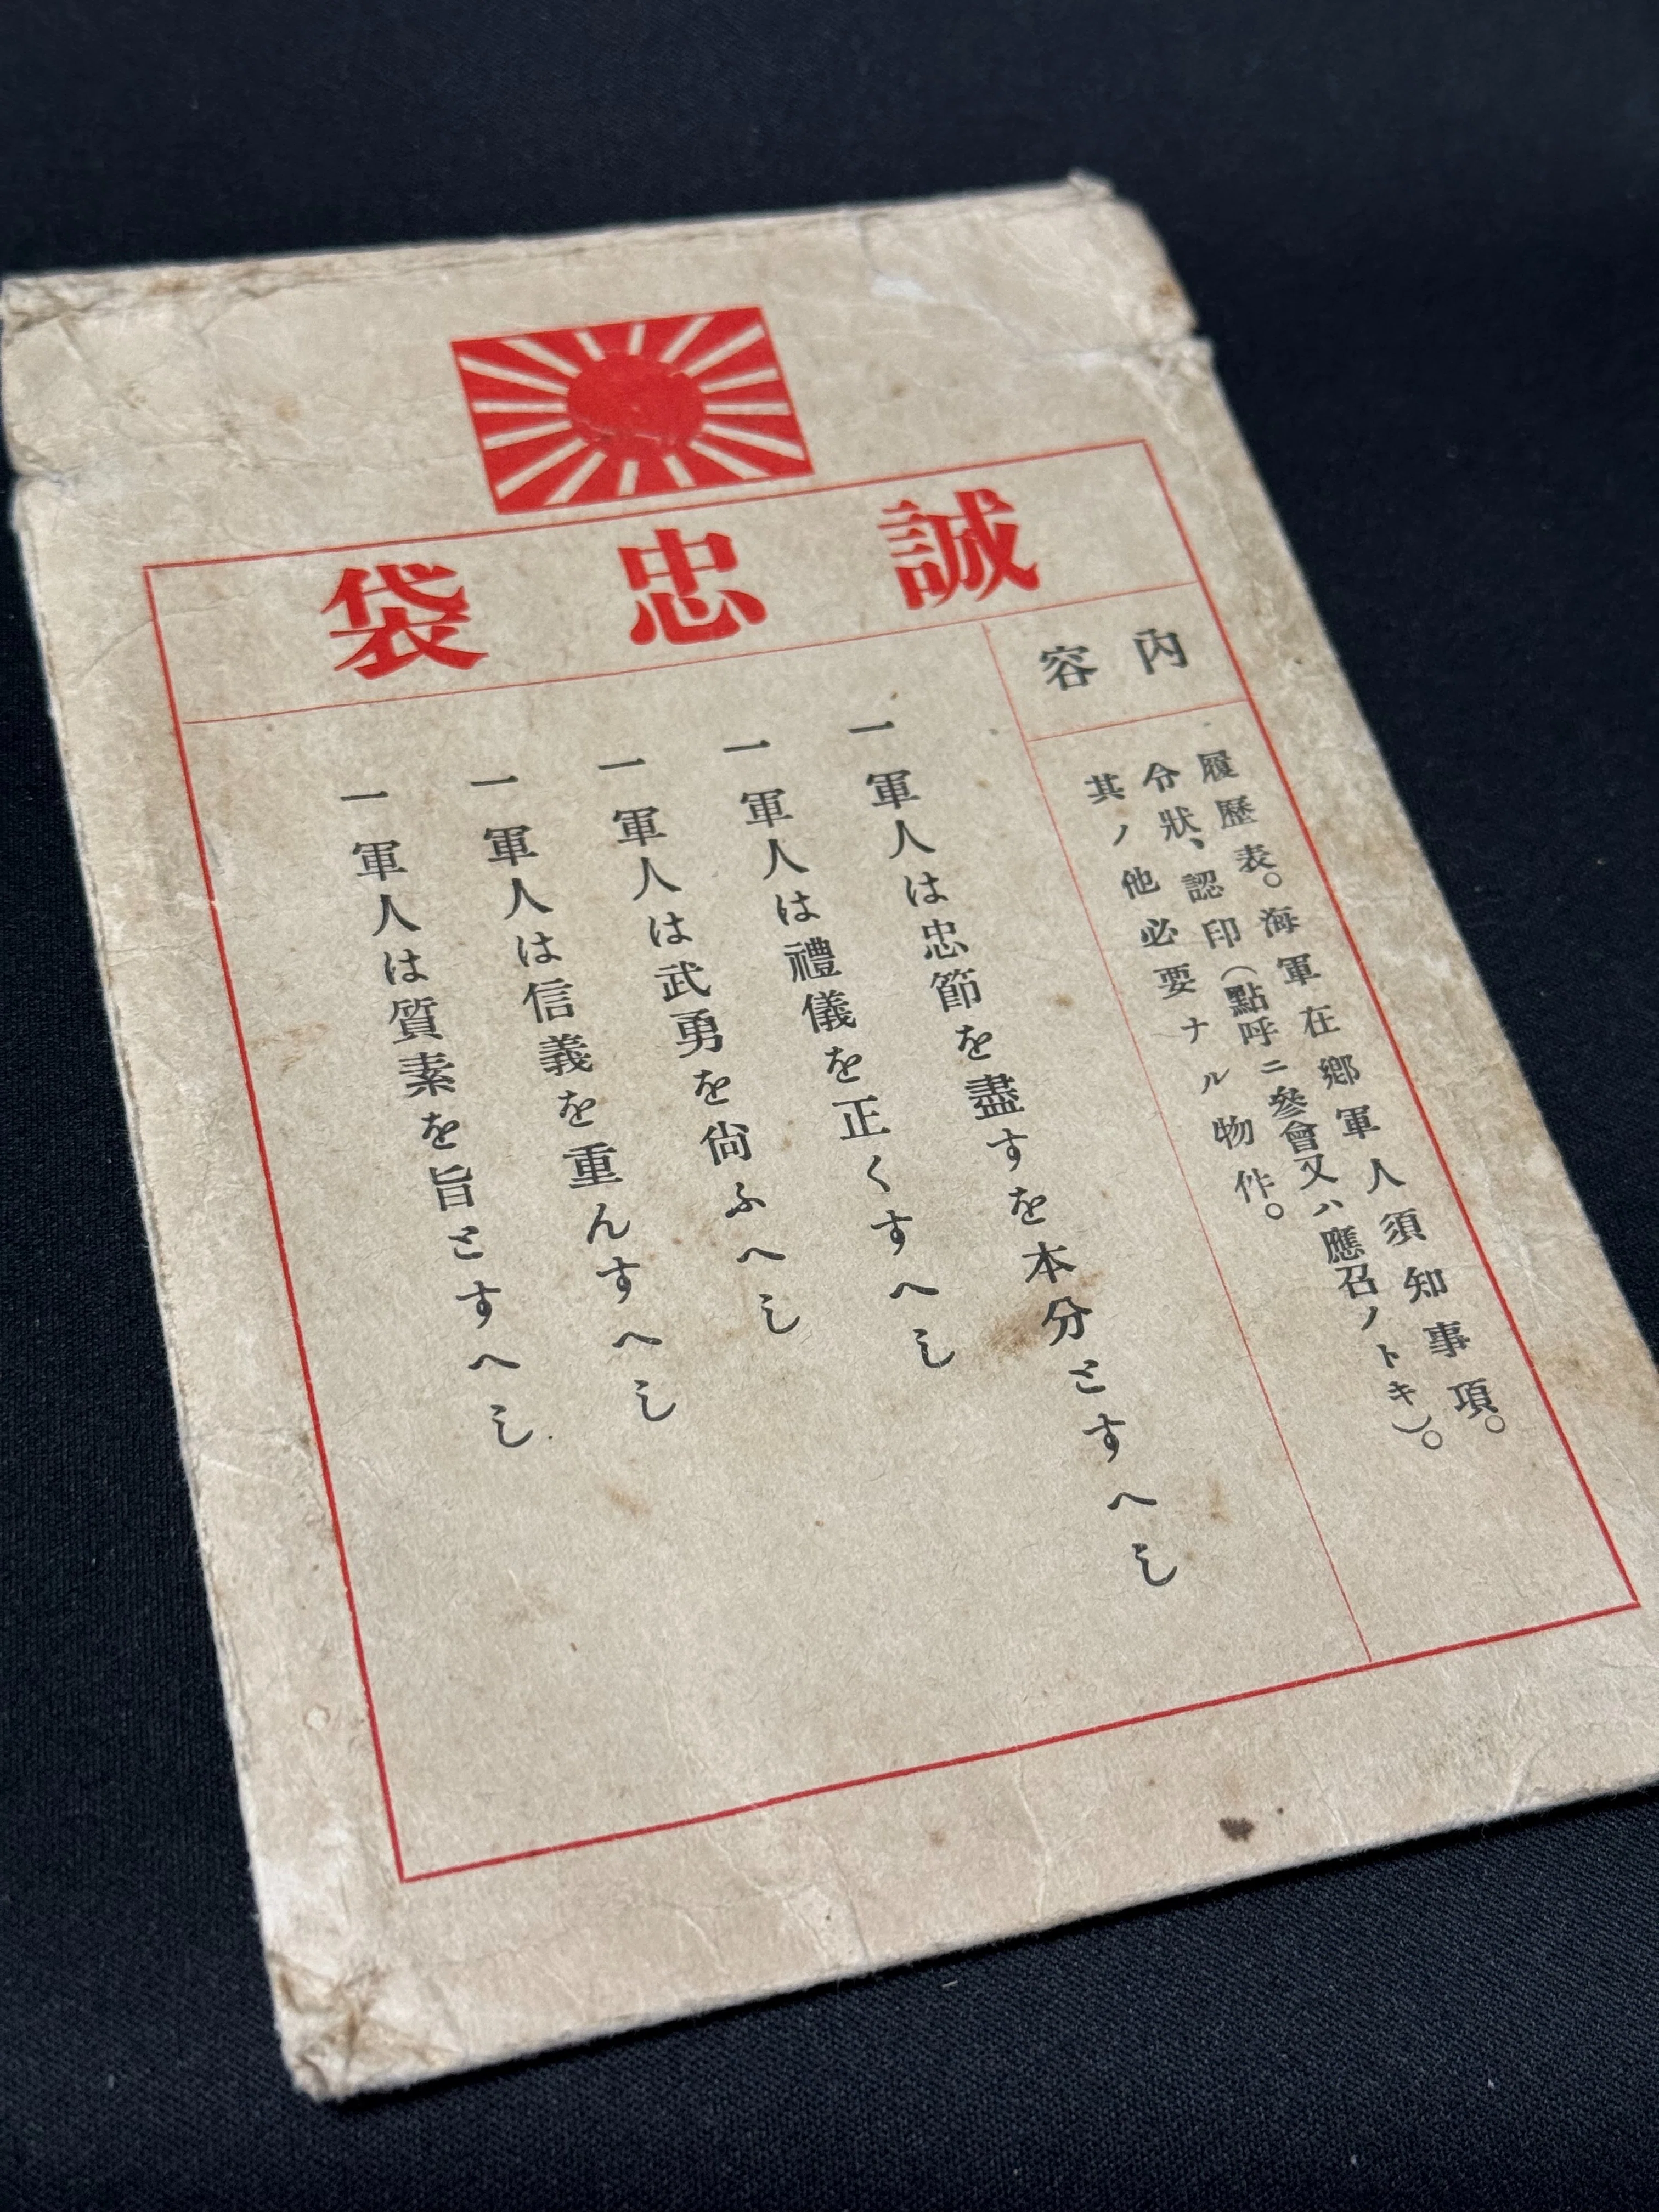 誠忠袋
內容
履歷表。海軍在鄕軍人須知事項。
分狀、認印(點呼ニ參會又ハ應召ノトキ)。
其ノ他必要ナル物件。
一軍人は忠節を盡すを本分とすへし
一軍人は禮儀を正くすへし
一軍人は武勇を尙ふへし
一軍人は信義を重んすへし
一軍人は質素を旨とすへし